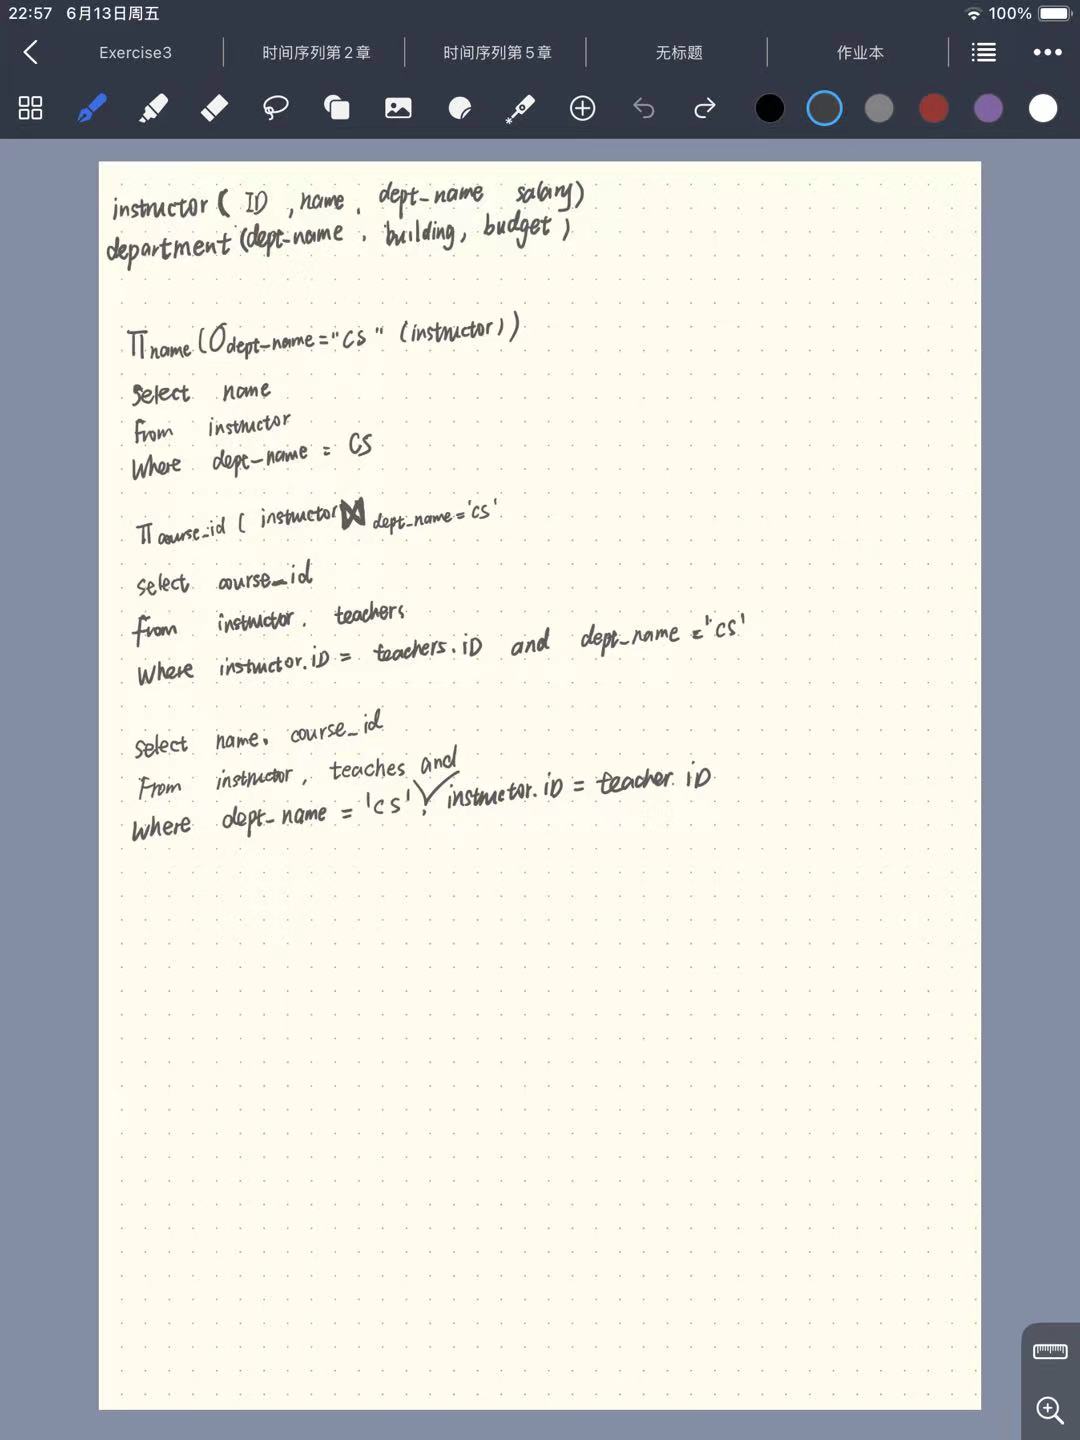 22:57 6月13日周五 100%
Exercise3 时间序列第2章 时间序列第5章 无标题 作业本
instructor ( ID , name , dept-name salary)
department (dept-name , building, budget )
π name (σ dept-name="cs" (instructor))
Select name
from instructor
Where dept-name = CS
π course_id ( instructor ⋈ dept_name='cs'
select course_id
from instructor, teachers
Where instructor.iD = teachers.iD and dept_name ='cs'
Select name, course_id
From instructor, teaches and
Where dept-name = 'cs', instructor.iD = teacher.iD